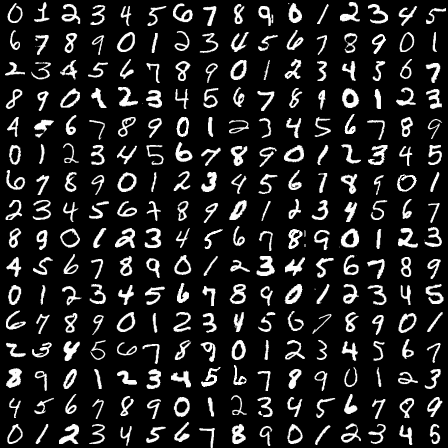 0 1 2 3 4 5 6 7 8 9 0 1 2 3 4 5
6 7 8 9 0 1 2 3 4 5 6 7 8 9 0 1
2 3 4 5 6 7 8 9 0 1 2 3 4 5 6 7
8 9 0 1 2 3 4 5 6 7 8 9 0 1 2 3
4 5 6 7 8 9 0 1 2 3 4 5 6 7 8 9
0 1 2 3 4 5 6 7 8 9 0 1 2 3 4 5
6 7 8 9 0 1 2 3 4 5 6 7 8 9 0 1
2 3 4 5 6 7 8 9 0 1 2 3 4 5 6 7
8 9 0 1 2 3 4 5 6 7 8 9 0 1 2 3
4 5 6 7 8 9 0 1 2 3 4 5 6 7 8 9
0 1 2 3 4 5 6 7 8 9 0 1 2 3 4 5
6 7 8 9 0 1 2 3 4 5 6 7 8 9 0 1
2 3 4 5 6 7 8 9 0 1 2 3 4 5 6 7
8 9 0 1 2 3 4 5 6 7 8 9 0 1 2 3
4 5 6 7 8 9 0 1 2 3 4 5 6 7 8 9
0 1 2 3 4 5 6 7 8 9 0 1 2 3 4 5